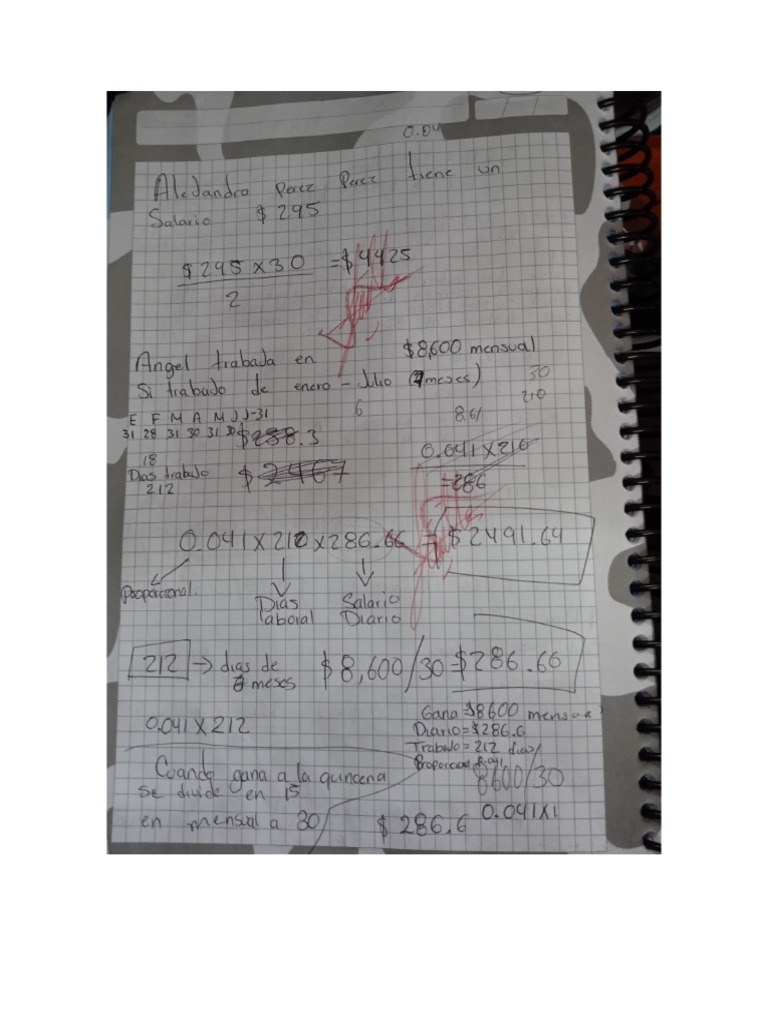 0.04
Alejandro Perez Perez tiene un
Salario $295
$295 x 30 = $4425
2
Angel trabada en $8,600 mensual
Si trabajo de enero - Julio (7 meses) 30
6 8.61 210
E F M A M J J-31
31 28 31 30 31 30 $288.3
18
Dias trabajo $2467
212
0.041 x 210
=286
0.041 x 212 x 286.66 = $2491.64
Proporcional.
Dias Salario
laboral Diario
212 → dias de $8,600/30=$286.66
meses
Gana=$8600 mensual
0.041 x 212
Diario=$286.6
Trabajo=212 dias
Proporcion 0.041
8600/30
Cuando gana a la quincena
se divide en 15
en mensual a 30
$286.6 0.041x1